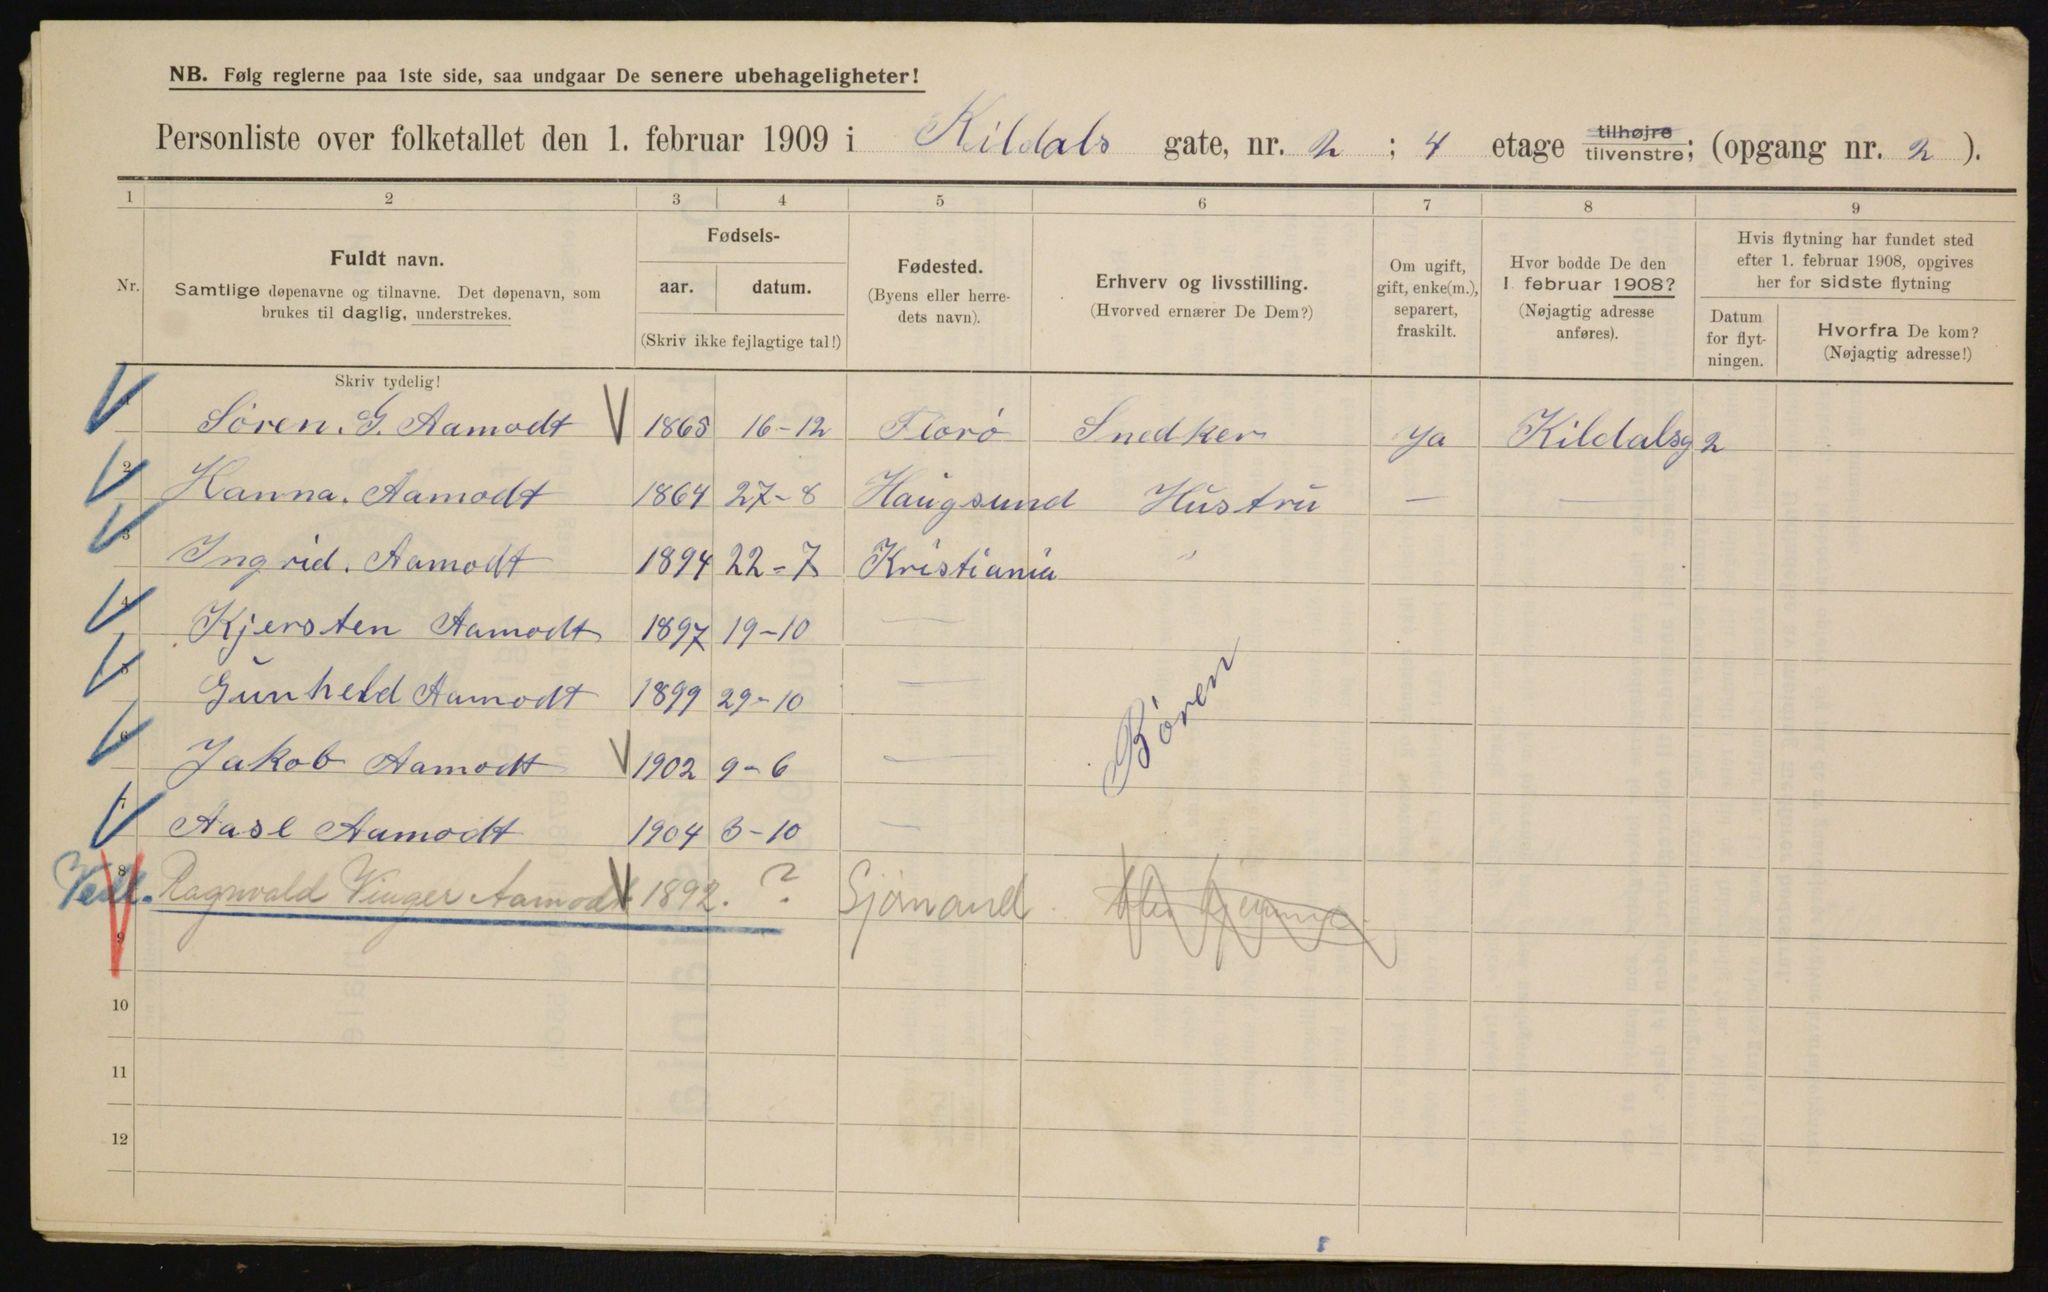 NB. Følg reglerne paa 1ste side, saa undgaar De senere ubehageligheter!
Personliste over folketallet den 1. februar 1909 i Kildals gate, nr. 2 ; 4 etage tilhøjre tilvenstre; (opgang nr. 2 ).
1 2 3 4 5 6 7 8 9
Nr.
Fuldt navn.
Samtlige døpenavne og tilnavne. Det døpenavn, som
brukes til daglig, understrekes.
Fødsels-
aar. datum.
(Skriv ikke fejlagtige tal!)
Fødested.
(Byens eller herre-
dets navn).
Erhverv og livsstilling.
(Hvorved ernærer De Dem?)
Om ugift,
gift, enke(m.),
separert,
fraskilt.
Hvor bodde De den
1. februar 1908?
(Nøjagtig adresse
anføres).
Hvis flytning har fundet sted
efter 1. februar 1908, opgives
her for sidste flytning
Datum
for flyt-
ningen.
Hvorfra De kom?
(Nøjagtig adresse!)
Skriv tydelig!
1 Søren. G. Aamodt 1865 16-12 Florø Snedker Ja Kildalsg 2
2 Hanna. Aamodt 1864 27-8 Haugsund Hustru — —
3 Ingrid. Aamodt 1894 22-7 Kristiania "
4 Kjersten Aamodt 1897 19-10 —
5 Gunheld Aamodt 1899 29-10 —
Børen
6 Jakob Aamodt 1902 9-6 —
7 Aase Aamodt 1904 3-10 —
8 Ragnvald Vinger Aamodt 1892. ? Sjømand
9
10
11
12